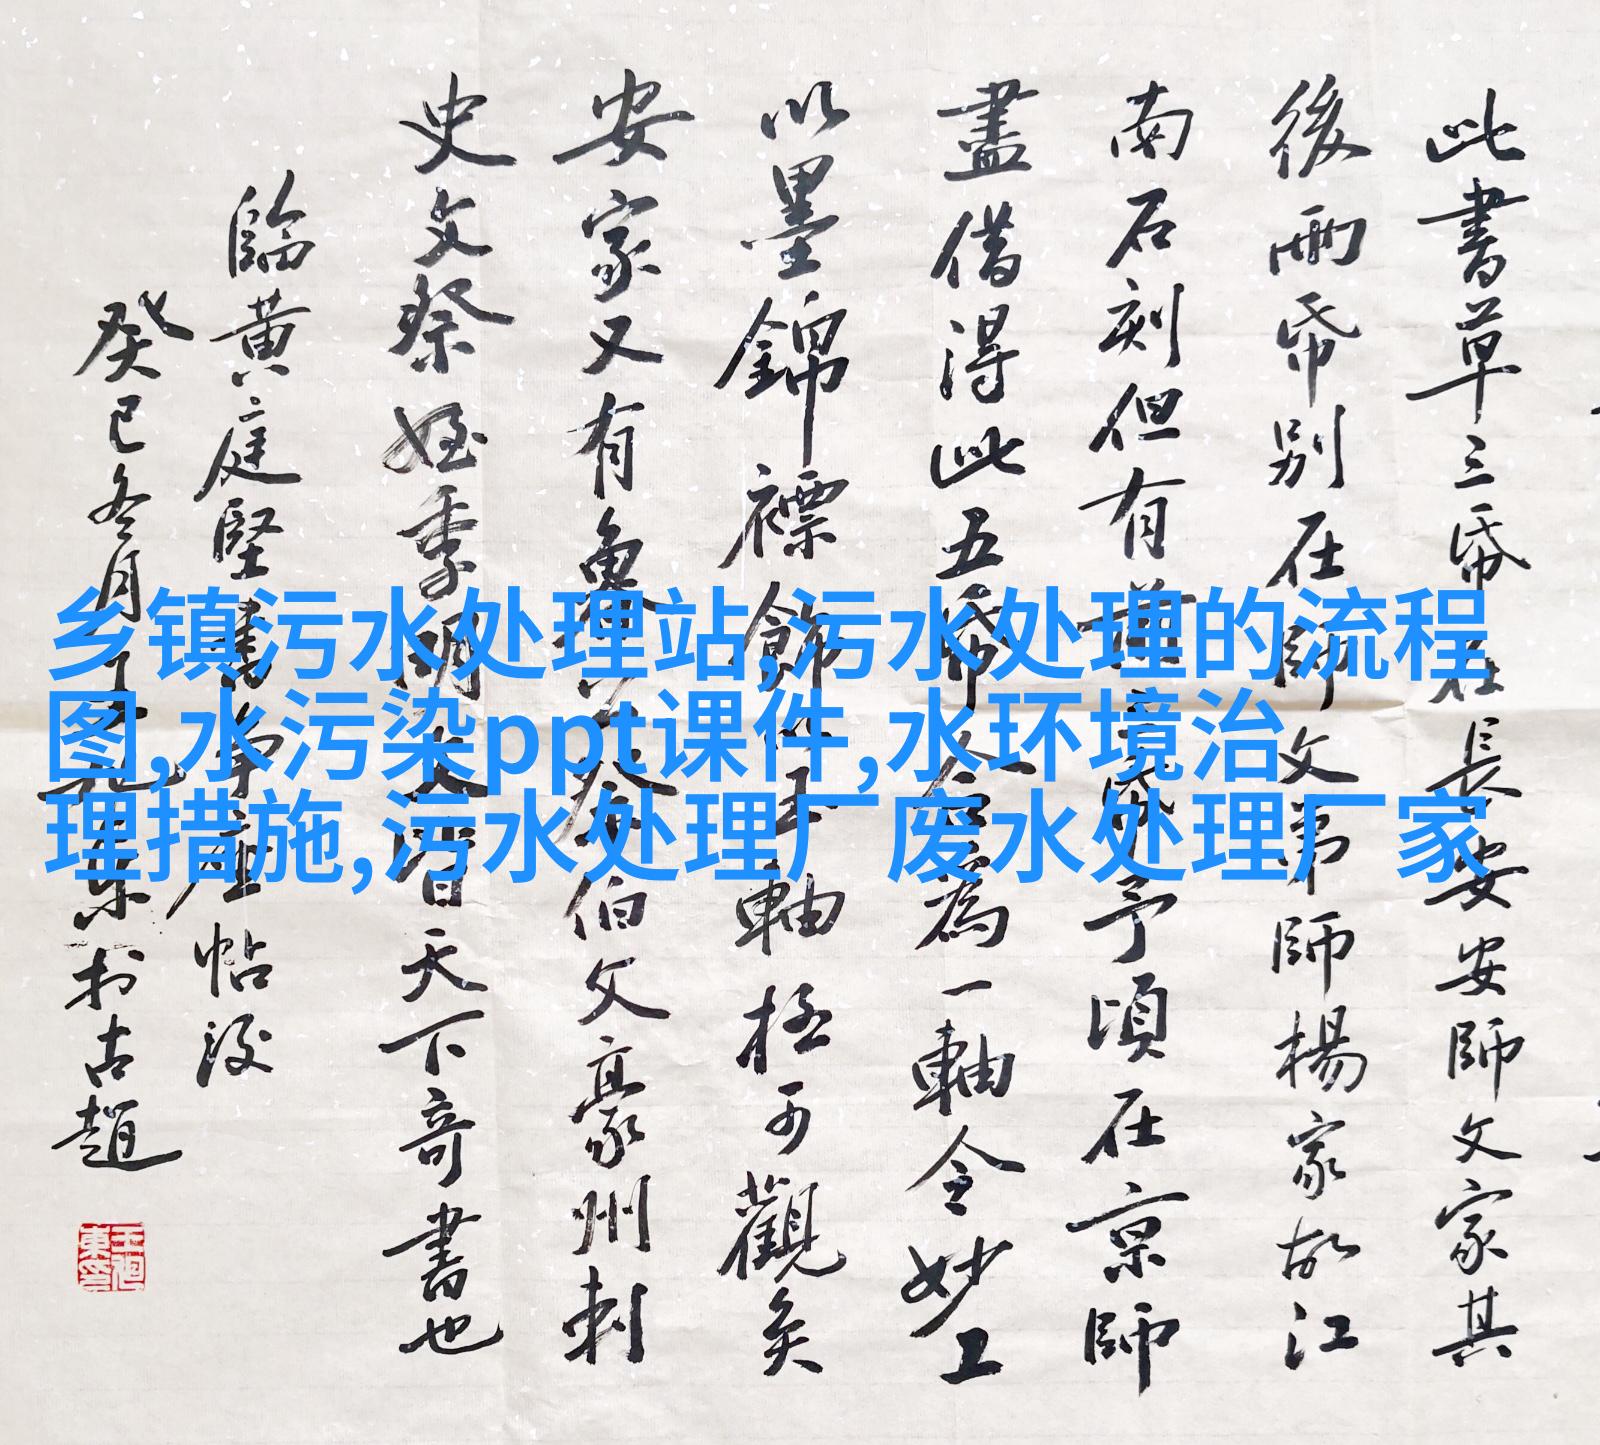 此書草三帋在長安安師文家其
後兩帋別在師文弟師楊家故江
南石刻但有帋予頃在京師
盡借得此五帋合為一軸令妙工
以墨錦褾飾以玉軸極可觀矣
安家又有魯公祭伯父豪州刺
史文祭姪季明文皆天下奇書也
臨黃庭堅書爭座帖後
癸巳冬月東於古趙
乡镇污水处理站,污水处理的流程
图,水污染ppt课件,水环境治
理措施,污水处理厂废水处理厂家